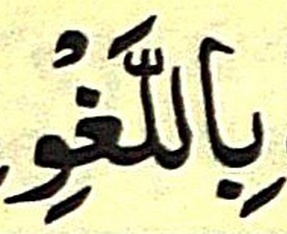 بِاللَّغْوِ